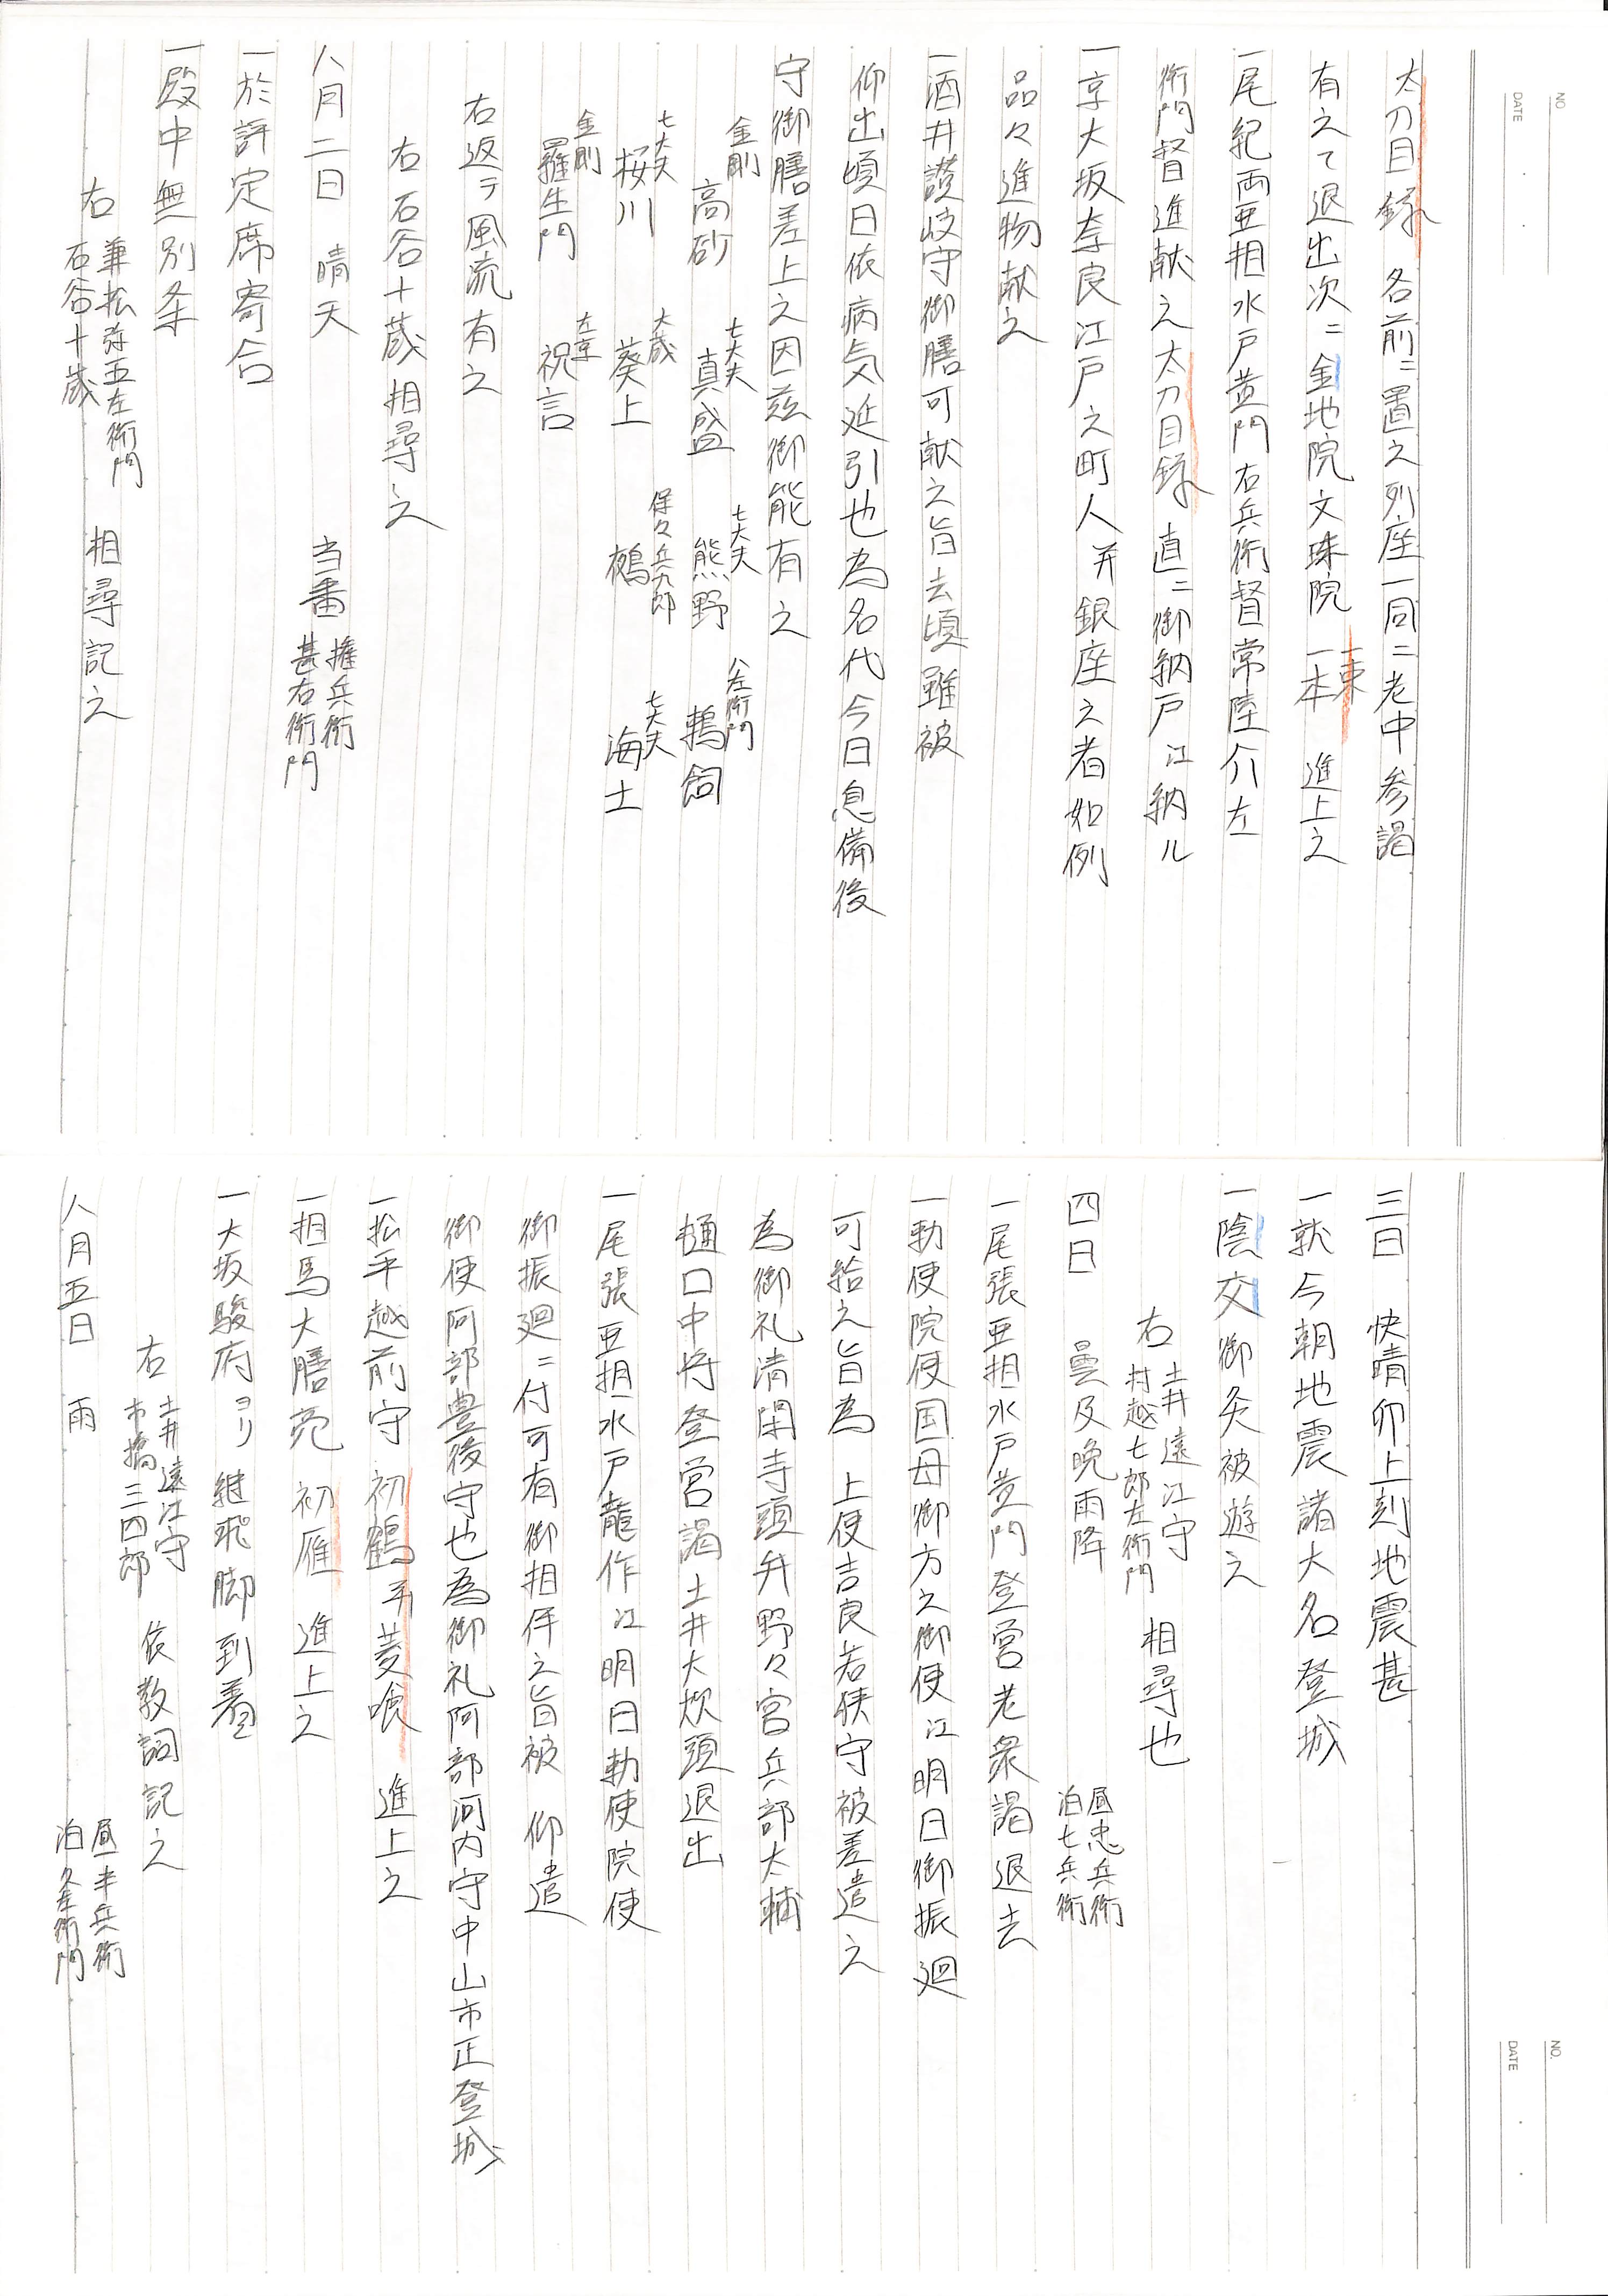 NO.
DATE
太刀目録 各前ニ置之列座一同ニ老中参謁
有之て退出次ニ金地院文殊院 一束一本 進上之
一尾紀両亜相水戸黄門右兵衛督常陸介左
衛門督進献之太刀目録 直ニ御納戸江納ル
一京大坂奈良江戸之町人并銀座之者如例
品々進物献之
一酒井讃岐守御膳可献之旨去頃雖被
仰出頃日依病気延引也為名代今日息備後
守御膳差上之因茲御能有之
金剛 高砂 七大夫 真盛 七大夫 熊野 八左衛門 鵜飼
七大夫 桜川 大蔵 葵上 保々兵九郎 鵺 七大夫 海士
金剛 羅生門 左京 祝言
右返テ風流有之
右石谷十蔵相尋之
八月二日 晴天 当番 権兵衛 甚右衛門
一於評定席寄合
一殿中無別条
右 兼松弥五左衛門 石谷十蔵 相尋記之
NO.
DATE
三日 快晴卯上刻地震甚
一就今朝地震諸大名登城
一陰交御灸被遊之
右 土井遠江守 村越七郎左衛門 相尋也
四日 曇及晩雨降 昼忠兵衛 泊七兵衛
一尾張亜相水戸黄門登営老衆謁退去
一勅使院使国母御方之御使江明日御振廻
可給之旨為 上使吉良若狭守被差遣之
為御礼清閑寺頭弁野々宮兵部太輔
樋口中将登営謁土井大炊頭退出
一尾張亜相水戸龍作江明日勅使院使
御振廻ニ付可有御相伴之旨被 仰遣
御使阿部豊後守也為御礼阿部河内守中山市正登城
一松平越前守 初鶴并菱喰 進上之
一相馬大膳亮 初雁 進上之
一大坂駿府ヨリ継飛脚到着
右 土井遠江守 市橋三四郎 依教詞記之
八月五日 雨 昼半兵衛 泊久左衛門